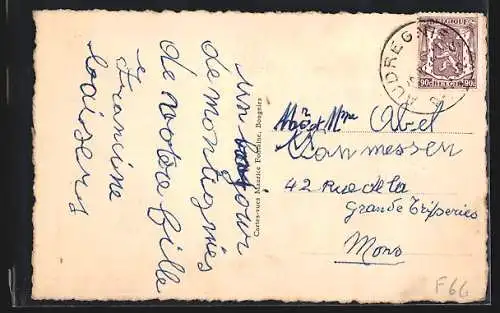 un bonjour
de montignies
de votre fille
Francine
baisers
Cartes-vues Maurice Fontaine, Bougnies
Mr et Mme Abel
42 Rue de la
Grande Triperies
Mons
BELGIQUE
90c BELGIE 90c
AUDREGNIES
F66